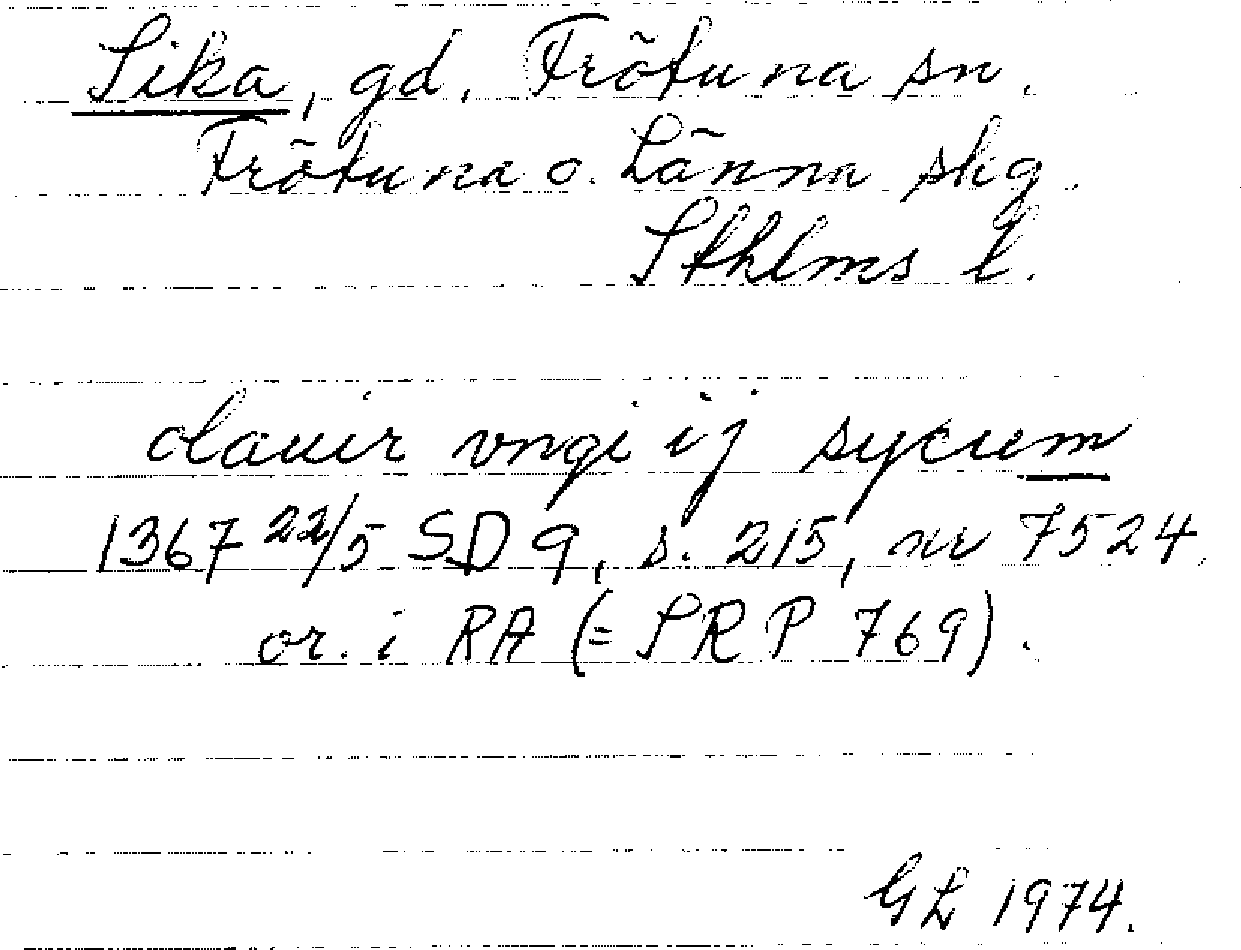 Sika, gd. Frötuna sn.
Frötuna o. Länna skg.
Sthlms l.
olauir vngi ij sycium
1367 22/5 SD 9, s. 215, nr 7524.
or. i RA (= SRP 769).
GL 1974.